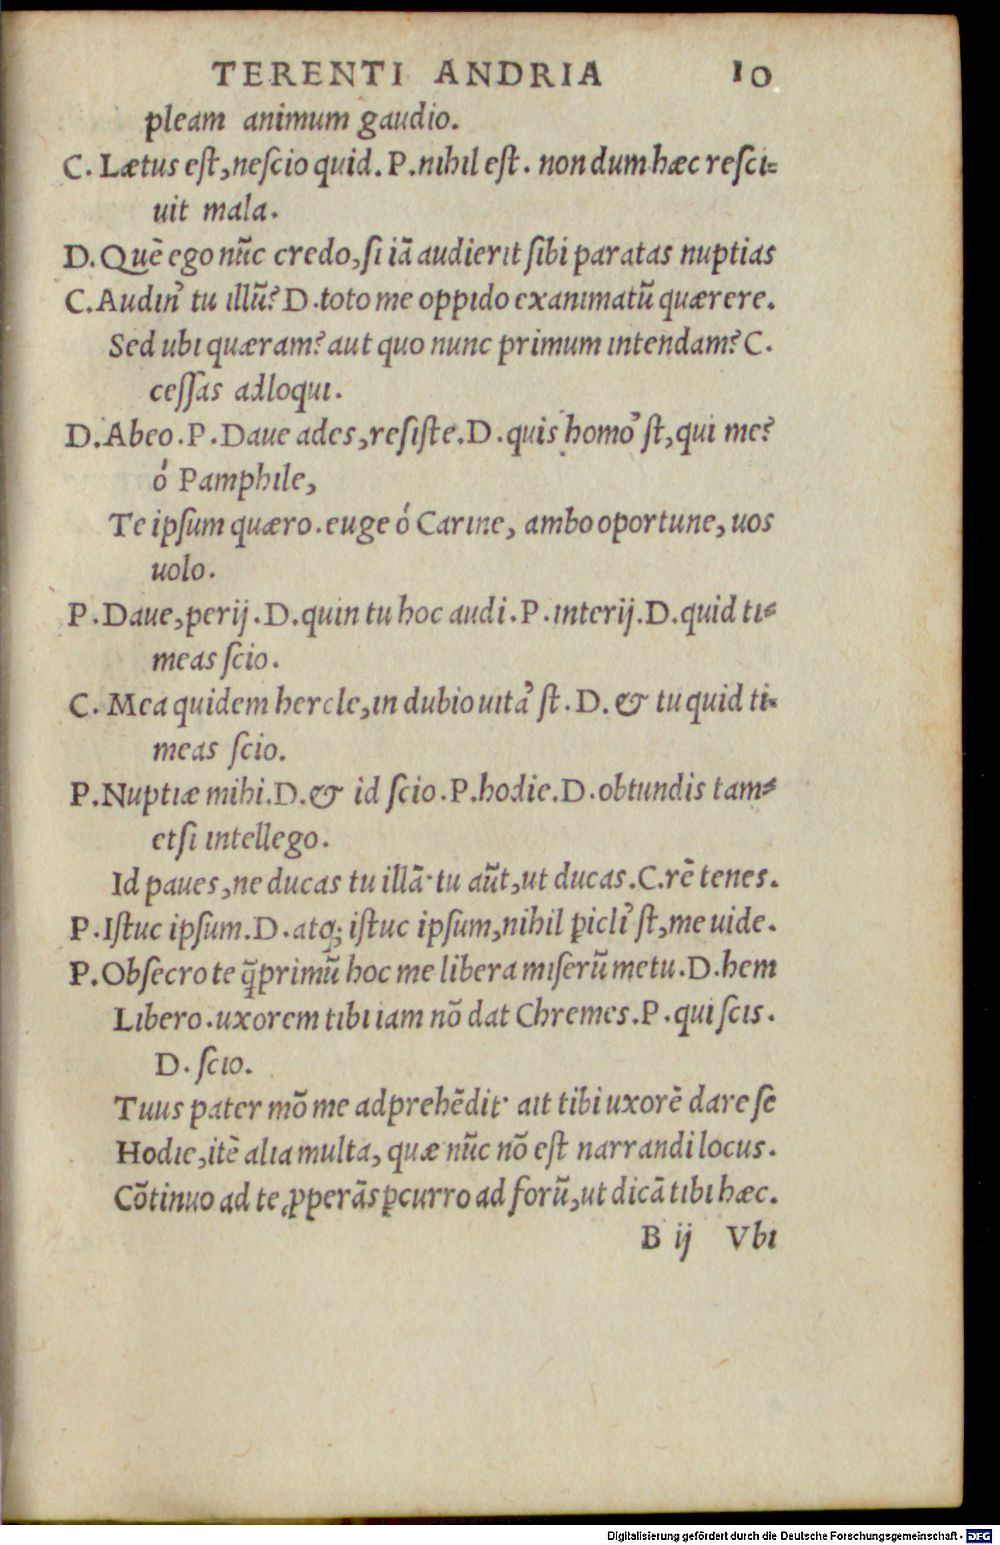 TERENTI ANDRIA 10
pleam animum gaudio.
C. Lætus eſt, neſcio quid. P. nihil eſt. non dum hæc reſci⸗
uit mala.
D. Quē ego nūc credo, ſi iā audierit ſibi paratas nuptias
C. Audin' tu illū? D. toto me oppido exanimatū quærere.
Sed ubi quæram? aut quo nunc primum intendam? C.
ceſſas adloqui.
D. Abeo. P. Daue ades, reſiſte. D. quis homo'ſt, qui me?
ó Pamphile,
Te ipſum quæro. euge ó Carine, ambo oportune, uos
uolo.
P. Daue, perij. D. quin tu hoc audi. P. interij. D. quid ti⸗
meas ſcio.
C. Mea quidem hercle, in dubio uita'ſt. D. & tu quid ti⸗
meas ſcio.
P. Nuptiæ mihi. D. & id ſcio. P. hodie. D. obtundis tam⸗
etſi intellego.
Id paues, ne ducas tu illā· tu aūt, ut ducas. C. rē tenes.
P. Iſtuc ipſum. D. atq; iſtuc ipſum, nihil ꝑicli'ſt, me uide.
P. Obſecro te q̄primū hoc me libera miſerū metu. D. hem
Libero. uxorem tibi iam nō dat Chremes. P. qui ſcis.
D. ſcio.
Tuus pater mō me adprehēdit· ait tibi uxorē dare ſe
Hodie, itē alia multa, quæ nūc nō eſt narrandi locus.
Cōtinuo ad te ꝓperās ꝑcurro ad forū, ut dicā tibi hæc.
B ij Vbi
Digitalisierung gefördert durch die Deutsche Forschungsgemeinschaft - DFG